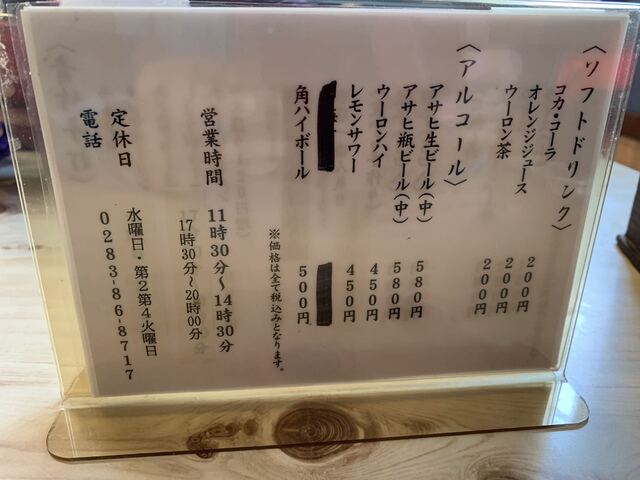 〈ソフトドリンク〉
コカ・コーラ 200円
オレンジジュース 200円
ウーロン茶 200円
〈アルコール〉
アサヒ生ビール(中) 580円
アサヒ瓶ビール(中) 580円
ウーロンハイ 450円
レモンサワー 450円
角ハイボール 500円
※価格は全て税込みとなります。
営業時間 11時30分〜14時30分
17時30分〜20時00分
定休日 水曜日・第2第4火曜日
電話 0283-86-8717